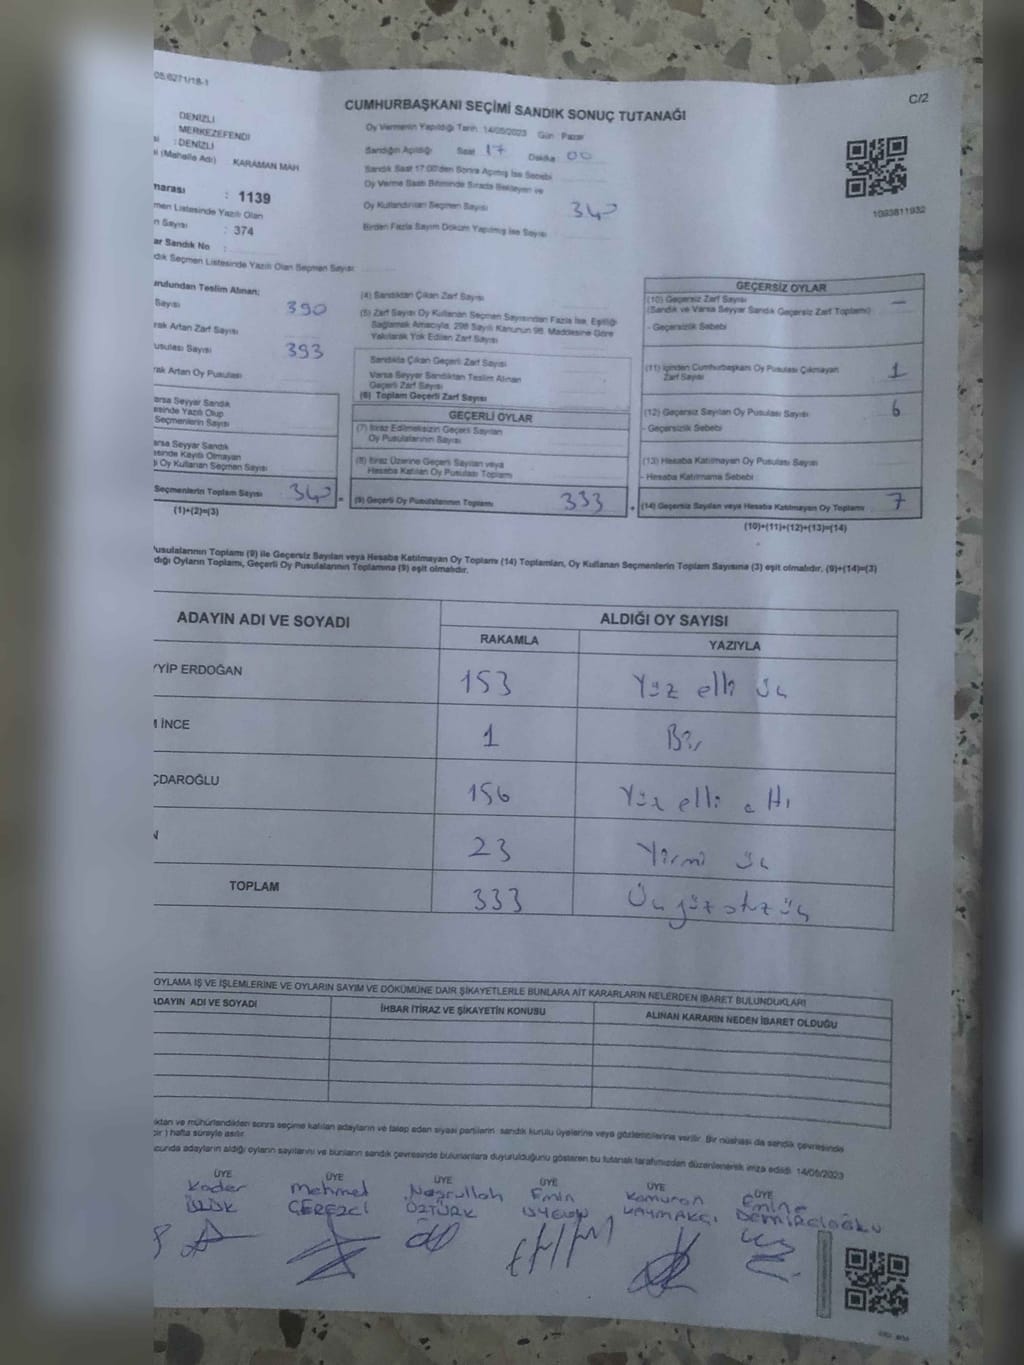 C/2
CUMHURBAŞKANI SEÇİMİ SANDIK SONUÇ TUTANAĞI
Oy Vermenin Yapıldığı Tarih: 14/05/2023 Gün: Pazar
Sandığın Açıldığı Saat 17 Dakika: 00
Sandık Saat 17:00'den Sonra Açılmış İse Sebebi
Oy Verme Saati Bitiminde Sırada Bekleyen ve
Oy Kullandırılan Seçmen Sayısı 340
Birden Fazla Sayım Döküm Yapılmış İse Sayısı
1093811932
DENİZLİ
MERKEZEFENDİ
: DENİZLİ
(Mahalle Adı) : KARAMAN MAH
marası : 1139
men Listesinde Yazılı Olan
n Sayısı : 374
ar Sandık No :
dık Seçmen Listesinde Yazılı Olan Seçmen Sayısı
urulundan Teslim Alınan;
Sayısı 390
rak Artan Zarf Sayısı
usulası Sayısı 393
rak Artan Oy Pusulası
arsa Seyyar Sandık
esinde Yazılı Olup
Seçmenlerin Sayısı
arsa Seyyar Sandık
esinde Kaydı Olmayan
Oy Kullanan Seçmen Sayısı
Seçmenlerin Toplam Sayısı 340
(1)+(2)=(3)
(4) Sandıktan Çıkan Zarf Sayısı
(5) Zarf Sayısı Oy Kullanan Seçmen Sayısından Fazla İse, Eşitliği
Sağlamak Amacıyla, 298 Sayılı Kanunun 98. Maddesine Göre
Yakılarak Yok Edilen Zarf Sayısı
Sandıkta Çıkan Geçerli Zarf Sayısı
Varsa Seyyar Sandıktan Teslim Alınan
Geçerli Zarf Sayısı
(6) Toplam Geçerli Zarf Sayısı
GEÇERLİ OYLAR
(7) İtiraz Edilmeksizin Geçerli Sayılan
Oy Pusulalarının Sayısı
(8) İtiraz Üzerine Geçerli Sayılan veya
Hesaba Katılan Oy Pusulası Toplamı
(9) Geçerli Oy Pusulalarının Toplamı 333
GEÇERSİZ OYLAR
(10) Geçersiz Zarf Sayısı —
(Sandık ve Varsa Seyyar Sandık Geçersiz Zarf Toplamı)
- Geçersizlik Sebebi
(11) İçinden Cumhurbaşkanı Oy Pusulası Çıkmayan
Zarf Sayısı 1
(12) Geçersiz Sayılan Oy Pusulası Sayısı 6
- Geçersizlik Sebebi
(13) Hesaba Katılmayan Oy Pusulası Sayısı
- Hesaba Katılmama Sebebi
(14) Geçersiz Sayılan veya Hesaba Katılmayan Oy Toplamı 7
(10)+(11)+(12)+(13)=(14)
usulalarının Toplamı (9) ile Geçersiz Sayılan veya Hesaba Katılmayan Oy Toplamı (14) Toplamları, Oy Kullanan Seçmenlerin Toplam Sayısına (3) eşit olmalıdır. (9)+(14)=(3)
dığı Oyların Toplamı, Geçerli Oy Pusulalarının Toplamına (9) eşit olmalıdır.
ADAYIN ADI VE SOYADI ALDIĞI OY SAYISI
RAKAMLA YAZIYLA
YYİP ERDOĞAN 153 Yüz elli üç
M İNCE 1 Bir
ÇDAROĞLU 156 Yüz elli altı
N 23 Yirmi üç
TOPLAM 333 Üç yüz otuz üç
OYLAMA İŞ VE İŞLEMLERİNE VE OYLARIN SAYIM VE DÖKÜMÜNE DAİR ŞİKAYETLERLE BUNLARA AİT KARARLARIN NELERDEN İBARET BULUNDUKLARI
ADAYIN ADI VE SOYADI İHBAR İTİRAZ VE ŞİKAYETİN KONUSU ALINAN KARARIN NEDEN İBARET OLDUĞU
ktan ve mühürlendikten sonra seçime katılan adayların ve talep eden siyasi partilerin sandık kurulu üyelerine veya gözlemcilerine verilir. Bir nüshası da sandık çevresinde
bir ) hafta süreyle asılır.
cunda adayların aldığı oyların sayılarını ve bunların sandık çevresinde bulunanlara duyurulduğunu gösteren bu tutanak tarafımızdan düzenlenerek imza edildi. 14/05/2023
ÜYE ÜYE ÜYE ÜYE ÜYE ÜYE
Kader Mehmet Nasrullah Emin Kamuran Emine
ÇEREZCİ ÖZTÜRK KAYMAKÇI DEMİRCİOĞLU